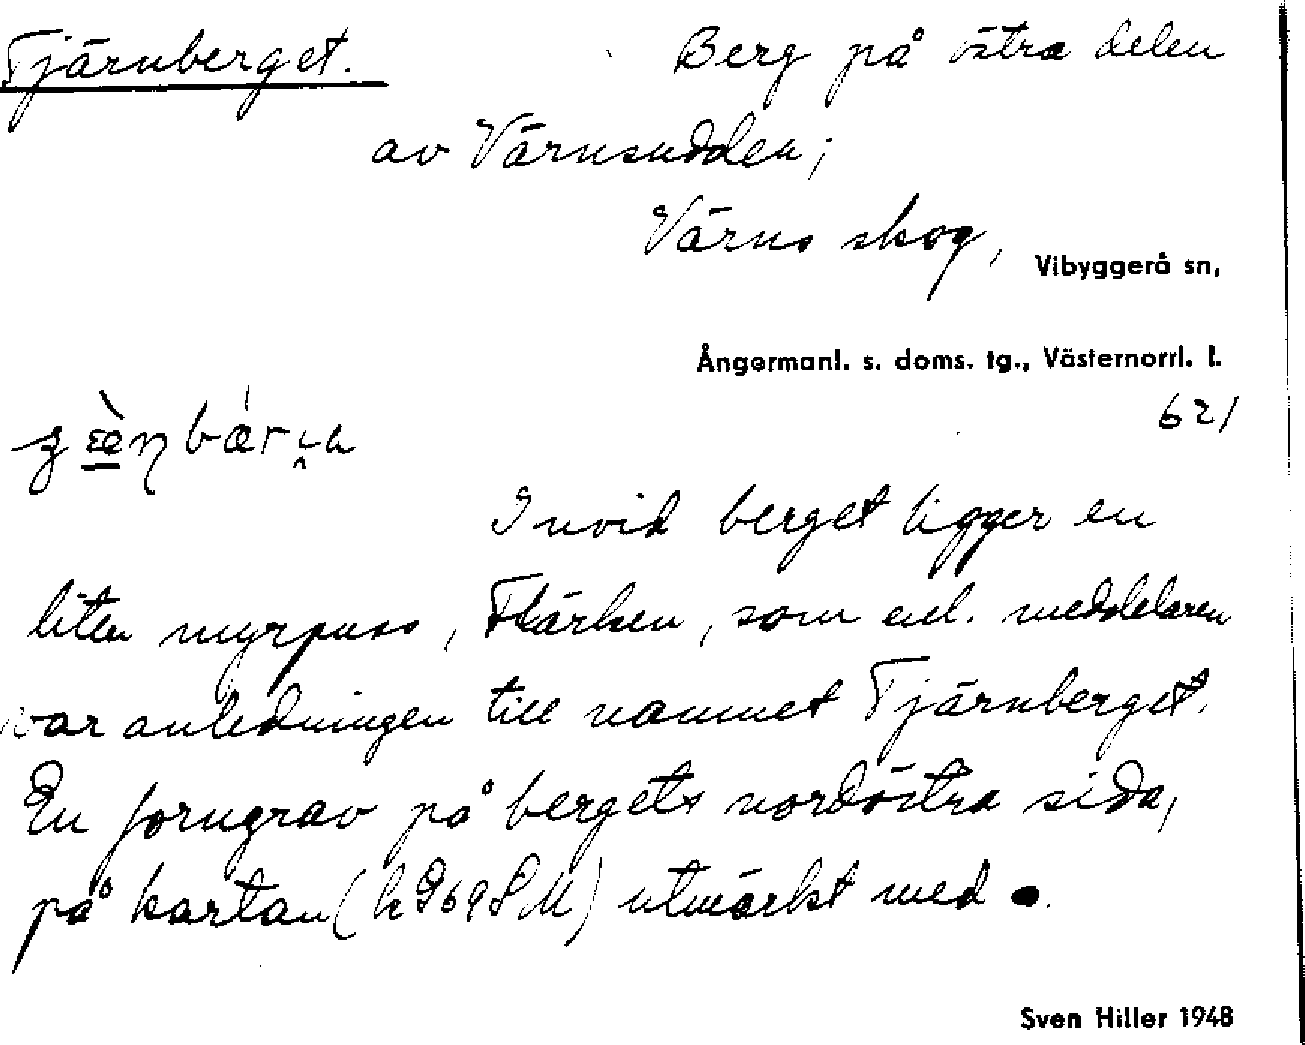 Tjärnberget. Berg på östra delen
av Värnsudden;
Värns skog, Vibyggerå sn,
Ångermanl. s. doms. tg., Västernorrl. l.
621
Invid berget ligger en
liten myrpuss, Flärken, som enl. meddelaren
var anledningen till namnet Tjärnberget.
En forngrav på bergets nordöstra sida,
på kartan ( ) utmärkt med ●.
Sven Hiller 1948